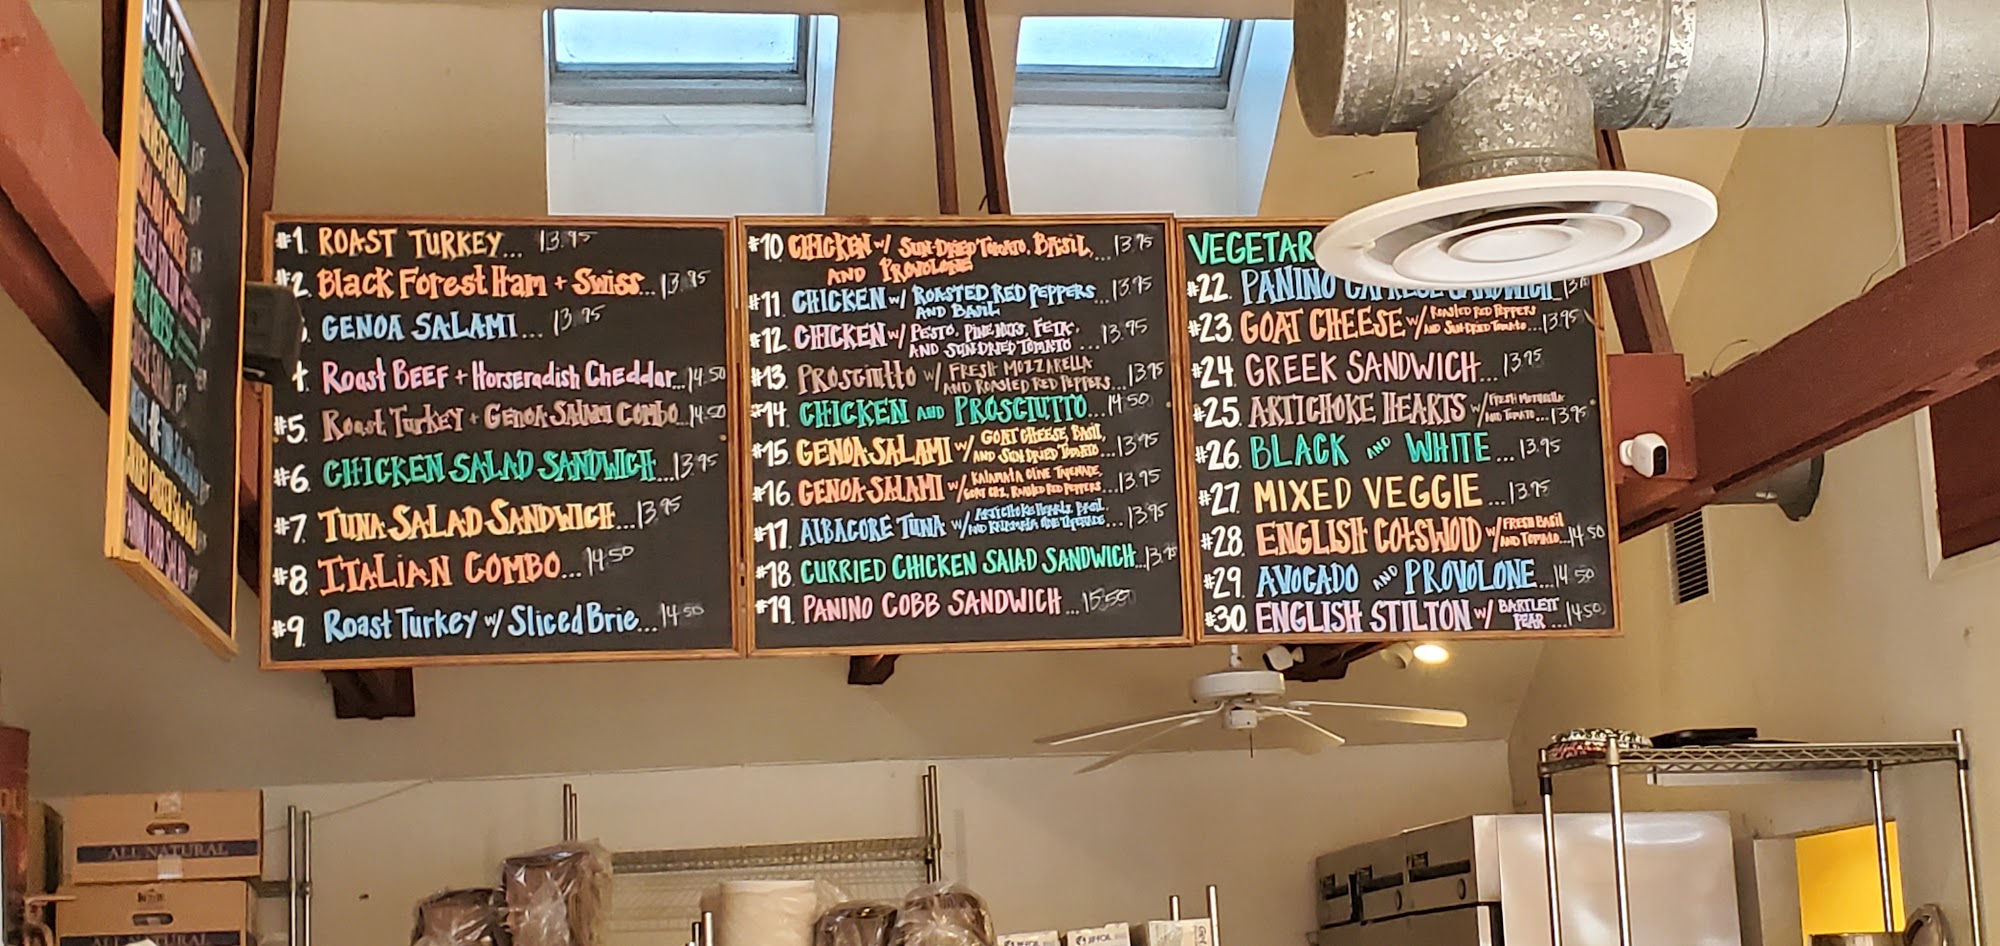 #1. ROAST TURKEY... 13.95
#2. Black Forest Ham + Swiss... 13.95
GENOA SALAMI... 13.95
Roast BEEF + Horseradish Cheddar... 14.50
#5. Roast Turkey + GENOA SALAMI COMBO... 14.50
#6. CHICKEN SALAD SANDWICH... 13.95
#7. TUNA SALAD SANDWICH... 13.95
#8. ITALIAN COMBO... 14.50
#9. Roast Turkey w/ Sliced Brie... 14.50
#10 CHICKEN w/ SUN-DRIED TOMATO, BASIL,... 13.95
AND PROVOLONE
#11. CHICKEN w/ ROASTED RED PEPPERS... 13.95
AND BASIL
#12. CHICKEN w/ PESTO, PINENUTS, FETA,
AND SUNDRIED TOMATO ... 13.95
#13. PROSCIUTTO w/ FRESH MOZZARELLA
AND ROASTED RED PEPPERS... 13.95
#14. CHICKEN AND PROSCIUTTO... 14.50
#15. GENOA SALAMI w/ GOAT CHEESE, BASIL,
AND SUN DRIED TOMATO... 13.95
#16. GENOA SALAMI w/ KALAMATA OLIVE TAPENADE,
ROASTED RED PEPPERS... 13.95
#17. ALBACORE TUNA w/ ARTICHOKE HEARTS, BASIL,
AND KALAMATA OLIVE TAPENADE... 13.95
#18. CURRIED CHICKEN SALAD SANDWICH...
#19. PANINO COBB SANDWICH... 15.50
#22. PANINO CAPRESE SANDWICH
#23. GOAT CHEESE w/ ROASTED RED PEPPERS
AND SUN-DRIED TOMATO... 13.95
#24. GREEK SANDWICH... 13.95
#25. ARTICHOKE HEARTS w/ FRESH MOZZARELLA
AND TOMATO... 13.95
#26. BLACK AND WHITE... 13.95
#27. MIXED VEGGIE... 13.95
#28. ENGLISH COTSWOLD w/ FRESH BASIL
AND TOMATO... 14.50
#29. AVOCADO AND PROVOLONE... 14.50
#30. ENGLISH STILTON w/ BARTLETT
PEAR ... 14.50
ALL NATURAL
ALL NATURAL